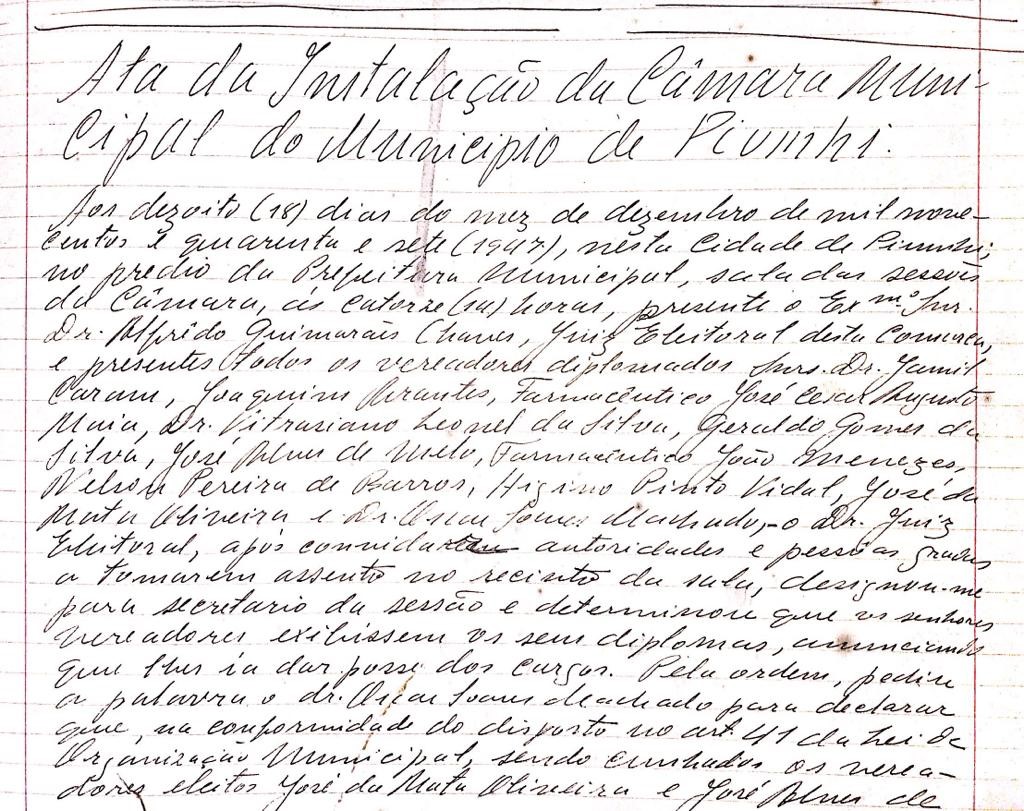 Ata da Instalação da Câmara Muni-
cipal do Municipio de Piumhi.
Aos dezoito (18) dias do mez de dezembro de mil nove-
centos e quarenta e sete (1947), nesta cidade de Piumhi,
no predio da Prefeitura Municipal, sala das sessões
da Câmara, ás catorze (14) horas, presente o Exmº. Snr.
Dr. Alfrêdo Guimarães Chaves, Juiz Eleitoral desta Comarca,
e presentes todos os vereadores diplomados Snrs. Dr. Jamil
Caram, Joaquim Arantes, Farmacêutico José Cesar Augusto
Maia, Dr. Vitrasiano Leonel da Silva, Geraldo Gomes da
Silva, José Alves de Melo, Farmacêutico João Menezes,
Nelson Pereira de Barros, Higino Pinto Vidal, José da
Mata Oliveira e Dr. Oscar Soares Machado, - o Dr. Juiz
Eleitoral, após convidar autoridades e pessôas gradas
a tomarem assento no recinto da sala, designou-me
para secretario da sessão e determinou que os senhores
vereadores exibissem os seus diplomas, anunciando
que lhes ia dar posse dos cargos. Pela ordem, pediu
a palavra o dr. Oscar Soares Machado para declarar
que, na conformidade do disposto no art. 41 da Lei de
Organização Municipal, sendo cunhados os verea-
dores eleitos José da Mata Oliveira e José Alves de